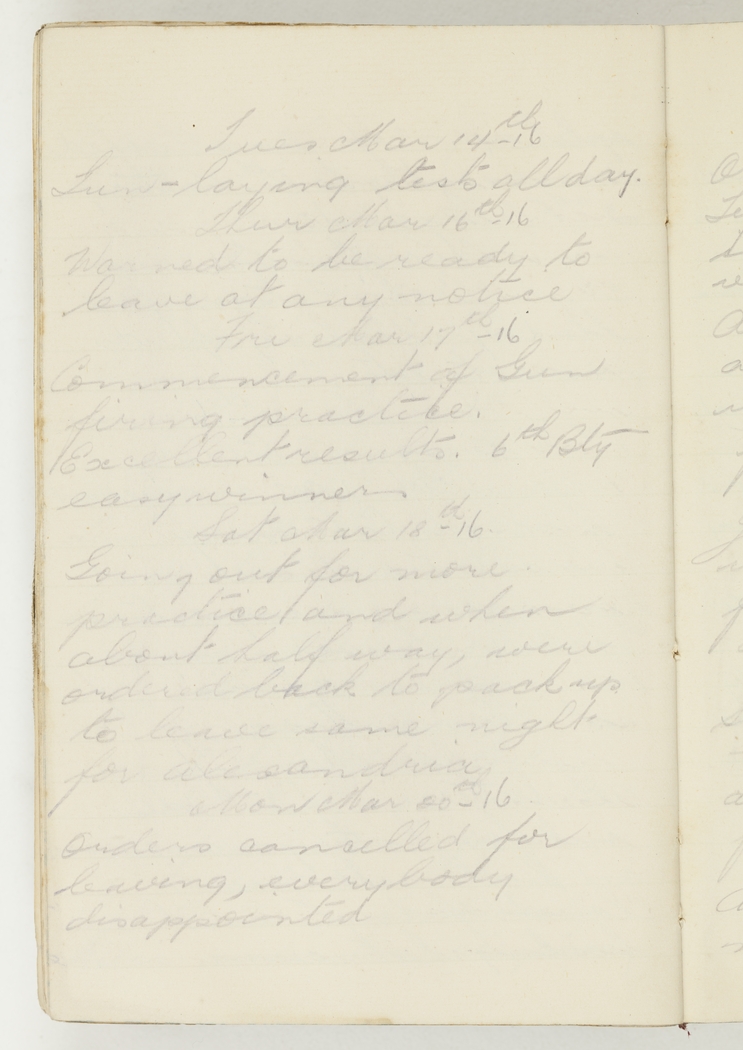 Tues Mar 14th-16
Gun-laying tests all day.
Thur Mar 16th-16
Warned to be ready to
leave at any notice
Fri Mar 17th-16
Commencement of Gun
firing practice.
Excellent results. 6th Bty
easy winners
Sat Mar 18th-16.
Going out for more
practice and when
about half way, were
ordered back to pack up
to leave same night
for Alexandria
Mon Mar 20th-16
Orders cancelled for
leaving, everybody
disappointed